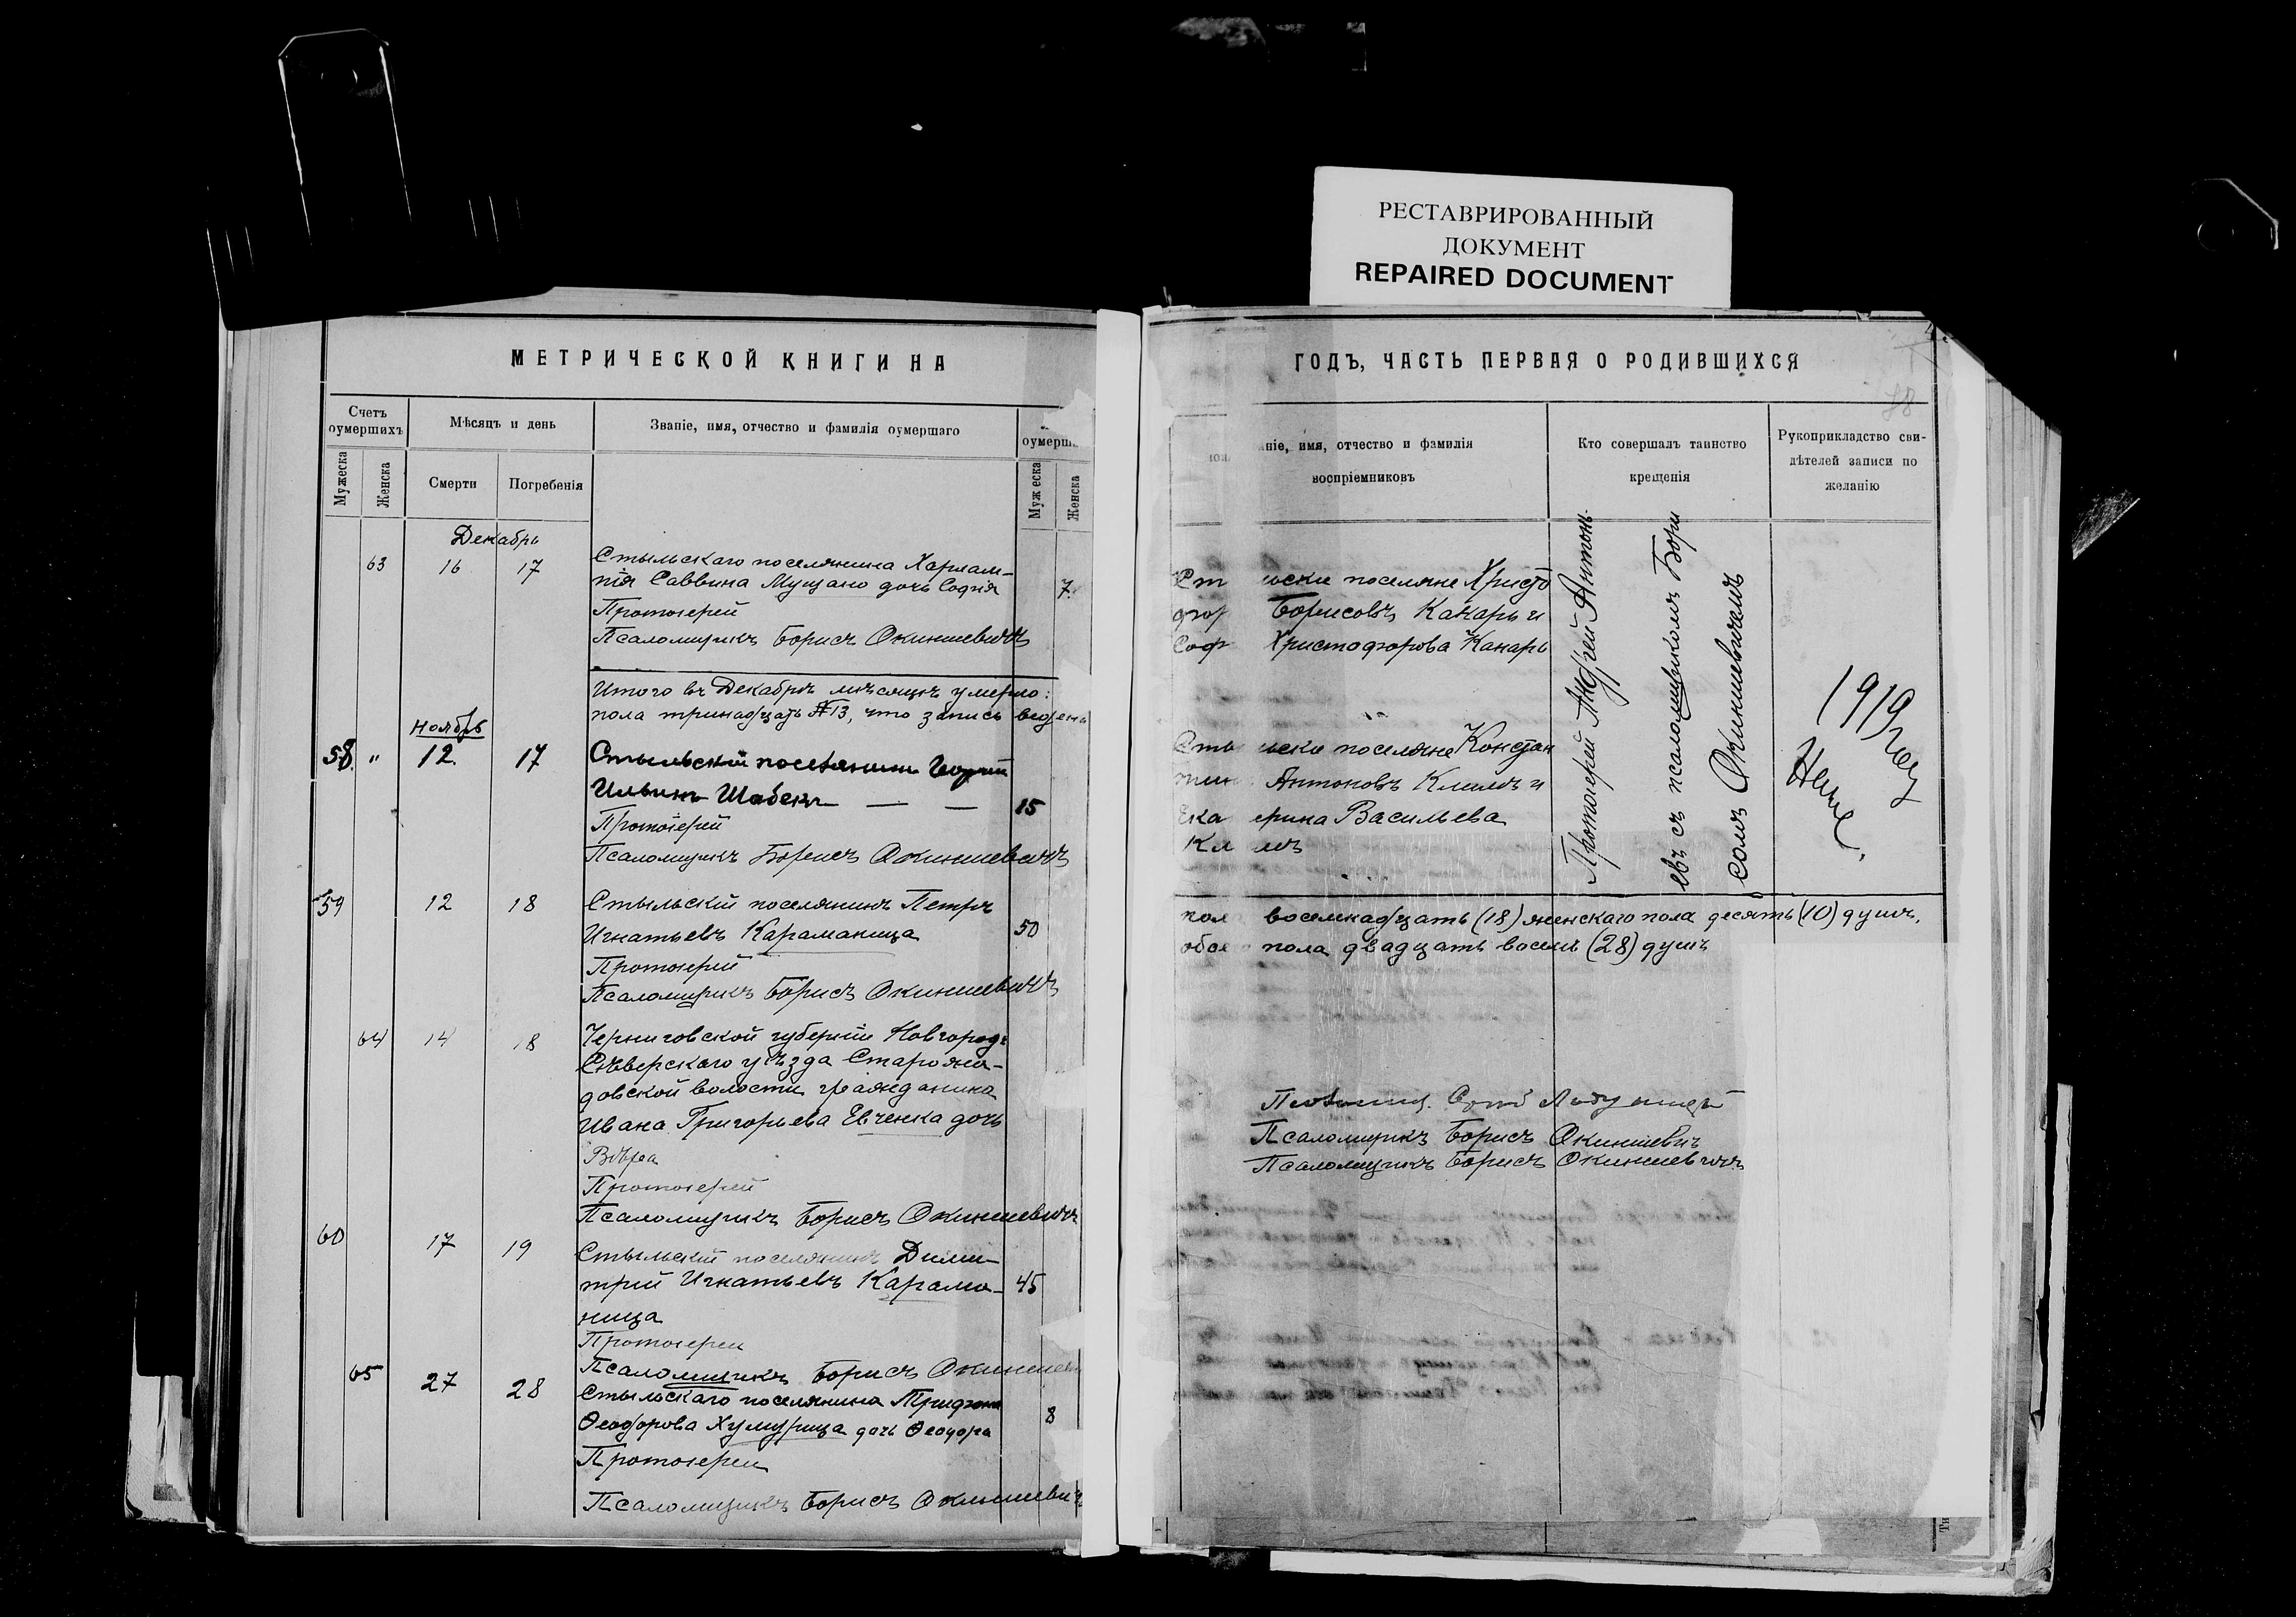 РЕСТАВРИРОВАННЫЙ
ДОКУМЕНТ
REPAIRED DOCUMENT
МЕТРИЧЕСКОЙ КНИГИ НА
Счетъ оумершихъ
Мѣсяцъ и день
Званіе, имя, отчество и фамилія оумершаго
оумерш
Мужеска
Женска
Смерти
Погребенія
Мужеска
Женска
Декабрь
63 16 17 Стыльскаго поселянина Харлам-
пія Саввина Мущано дочь Софія 7.
Протоіерей
Псаломщикъ Борисъ Окиншевичъ
Итого въ Декабрѣ мѣсяцѣ умерло:
пола тринадцать 13, что запись ведена
Ноябрь
58 " 12. 17 Стыльскій поселянинъ Георгій
Ильинъ Шабекъ — — 15
Протоіерей
Псаломщикъ Борисъ Окиншевичъ
59 12 18 Стыльскій поселянинъ Петръ
Игнатьевъ Караманица 50
Протоіерей
Псаломщикъ Борисъ Окиншевичъ
64 14 18 Черниговской губерніи Новгородъ
Сѣверскаго уѣзда
довской волости гражданина
Ивана Григорьева Евченка дочь
Вѣра
Протоіерей
Псаломщикъ Борисъ Окиншевичъ
60 17 19 Стыльскій поселянинъ Дими-
трій Игнатьевъ Карама- 45
ница
Протоіерей
Псаломщикъ Борисъ Окиншеви
65 27 28 Стыльскаго поселянина Трифона
Ѳеодорова Хумурица дочь Ѳеодора 8
Протоіерей
Псаломщикъ Борисъ Окиншевич
ГОДЪ, ЧАСТЬ ПЕРВАЯ О РОДИВШИХСЯ
78
ніе, имя, отчество и фамилія
воспріемниковъ
Кто совершалъ таинство
крещенія
Рукоприкладство сви-
дѣтелей записи по
желанію
Ст ьски поселяне Христо
фор Борисовъ Канаръ и
Соф Христофорова Канаръ
Сты ьски поселяне Констан
тин Антоновъ Климъ и
Ека ерина Васильева
Кл мъ
Протоіерей Андрей Антонь-
евъ съ псаломщикомъ Бори
сомъ Окиншевичемъ
1919
пол восемнадцать (18) женскаго пола десять (10) душъ,
обое пола двадцать восемь (28) душъ
Псаломщикъ Борисъ Окиншевичъ
Псаломщикъ Борисъ Окиншевичъ